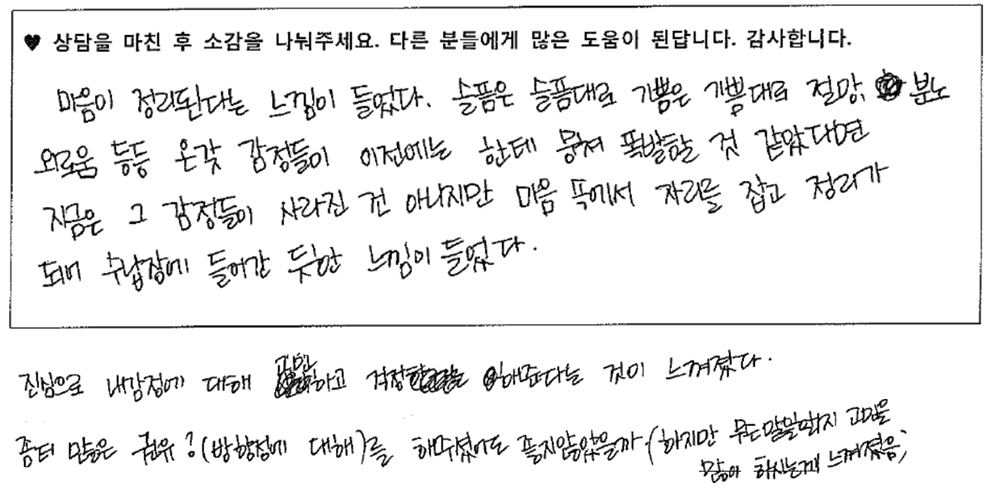 ♥ 상담을 마친 후 소감을 나눠주세요. 다른 분들에게 많은 도움이 된답니다. 감사합니다.
마음이 정리된다는 느낌이 들었다. 슬픔은 슬픔대로 기쁨은 기쁨대로 절망, 분노
외로움 등등 온갖 감정들이 이전에는 한테 뭉쳐 폭발할 것 같았다면
지금은 그 감정들이 사라진 건 아니지만 마음 쪽에서 자리를 잡고 정리가
되어 수납장에 들어간 듯한 느낌이 들었다.
진심으로 내감정에 대해 고민하고 걱정해준다는 것이 느껴졌다.
좀더 많은 권유?(방향점에 대해)를 해주셨어도 좋지않았을까 (하지만 무슨말을할지 고민을
많이 하시는게 느껴졌음)